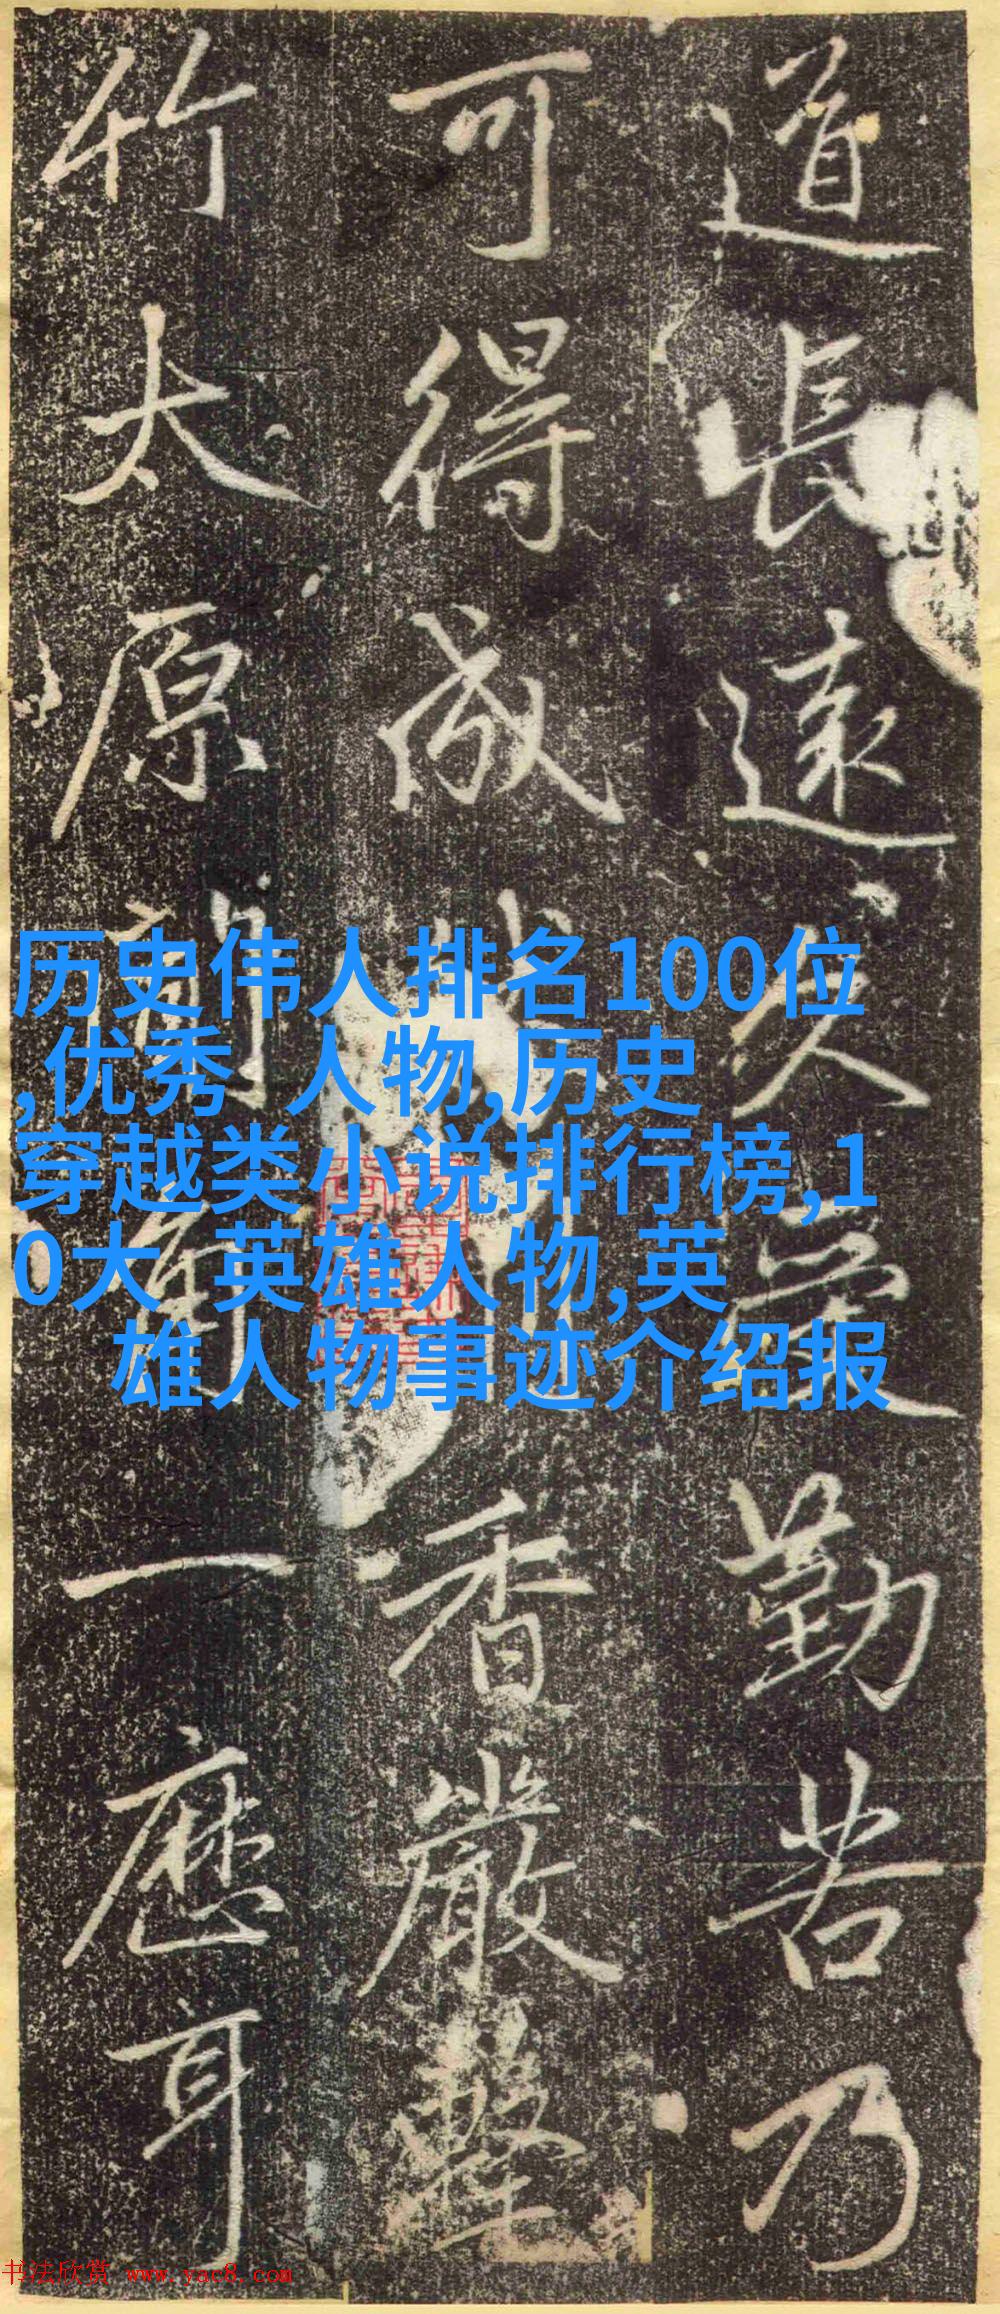 道長遠久受勤苦乃
可得成香嚴擊
竹太原一應耳
历史伟人排名100位
,优秀 人物,历史
穿越类小说排行榜,1
0大 英雄人物,英
雄人物事迹介绍报
书法欣赏 www.yac8.com